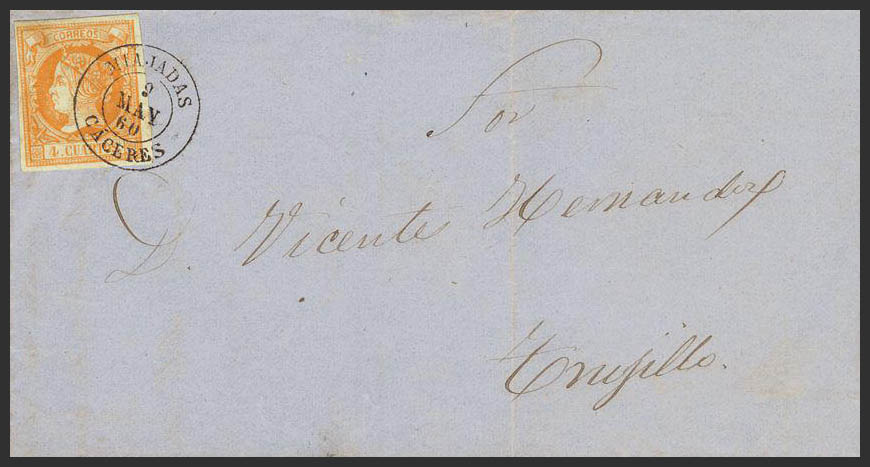 CORREOS
MIAJADAS
9
MAY
60
CÁCERES
4 CU
Sor
D. Vicente Hernandez
Trujillo.